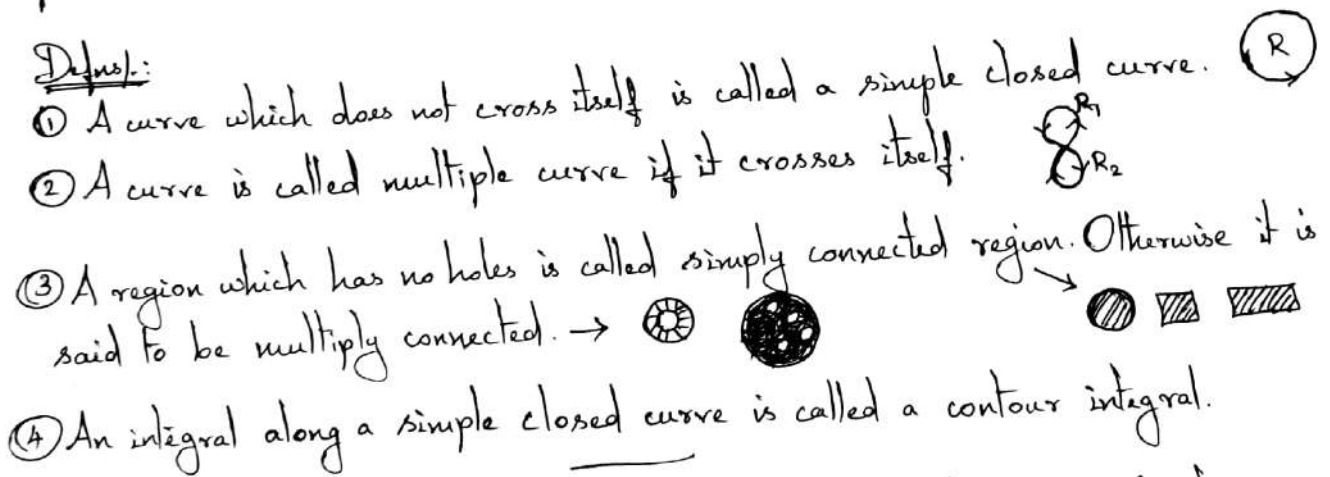 Defns/.:
① A curve which does not cross itself is called a simple closed curve. R
② A curve is called multiple curve if it crosses itself. R1 R2
③ A region which has no holes is called simply connected region. Otherwise it is
said to be multiply connected. →
④ An integral along a simple closed curve is called a contour integral.